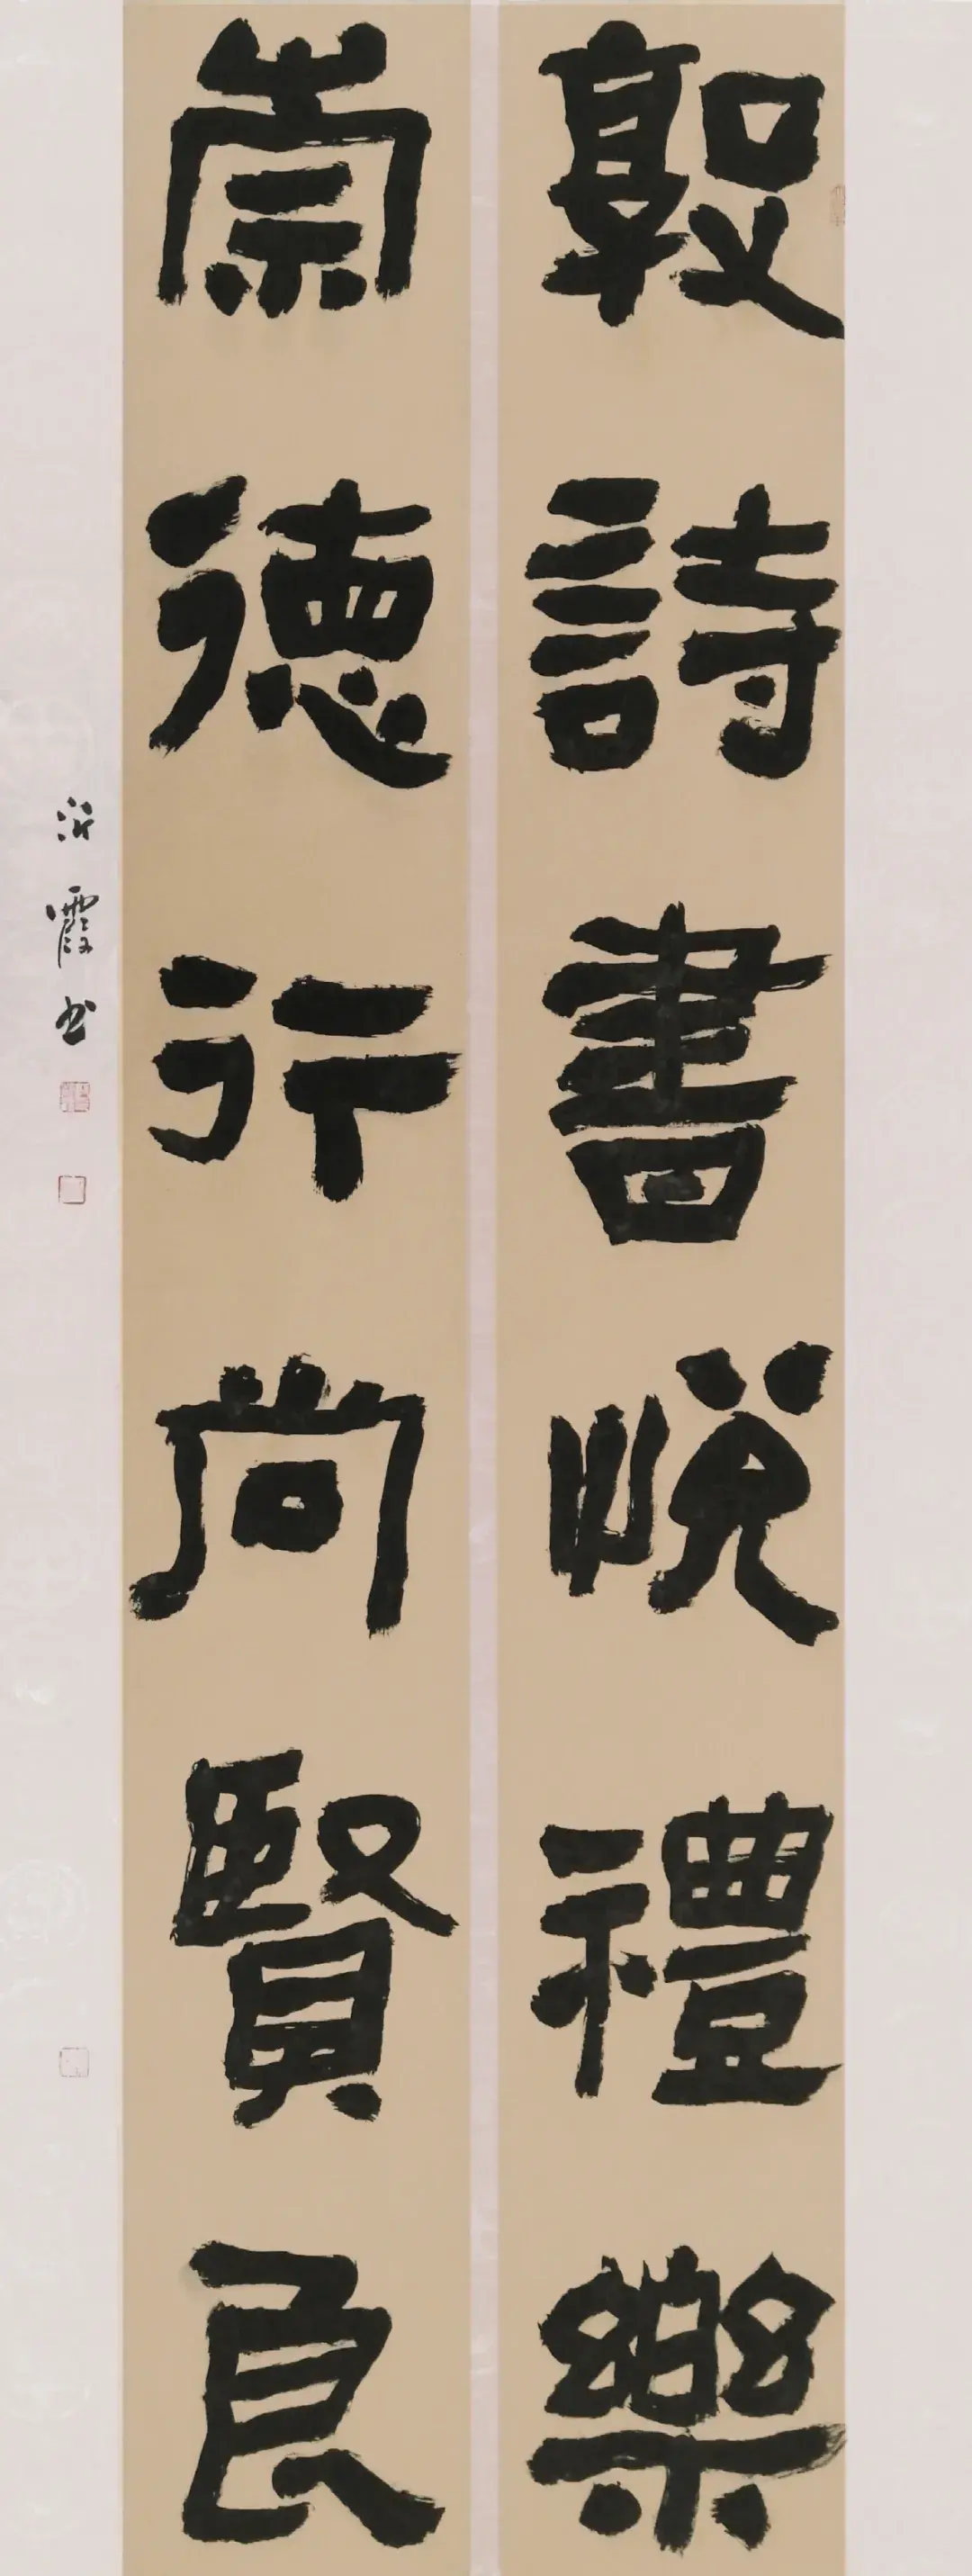 敦詩書悦禮樂
崇德行尚賢良
沂霞书